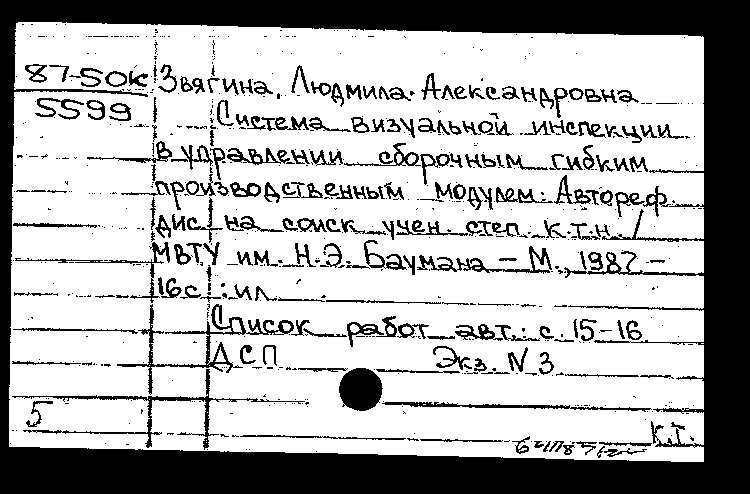 87-50к Звягина, Людмила Александровна
5599 Система визуальной инспекции
в управлении сборочным гибким
производственным модулем: Автореф.
дис. на соиск учен. степ. к.т.н. /
МВТУ им. Н.Э. Баумана – М., 1987. –
16с : ил
Список работ авт.: с. 15-16
ДСП Экз. N 3
5
К.Т.